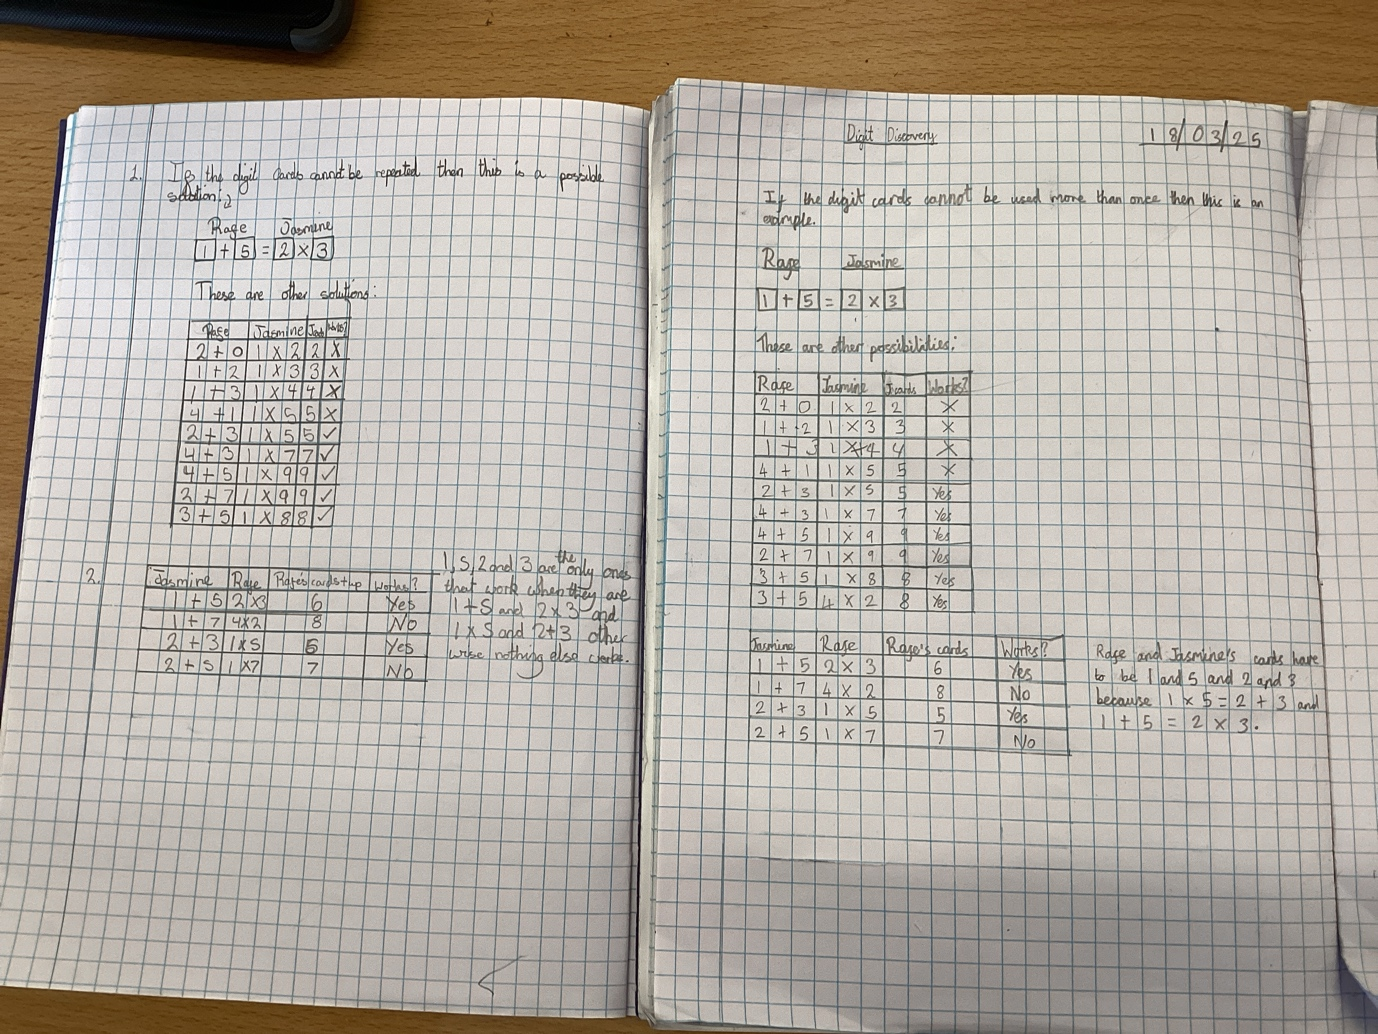 1. If the digit cards cannot be repeated then this is a possible
solution:
Rage Jasmine
1 + 5 = 2 × 3
These are other solutions:
Rage Jasmine Works?
2 + 0 1 × 2 2 ×
1 + 2 1 × 3 3 ×
1 + 3 1 × 4 4 ×
4 + 1 1 × 5 5 ×
2 + 3 1 × 5 5 ✓
4 + 3 1 × 7 7 ✓
4 + 5 1 × 9 9 ✓
2 + 7 1 × 9 9 ✓
3 + 5 1 × 8 8 ✓
2.
Jasmine Rage Rage's cards + up Works?
1 + 5 2 × 3 6 Yes
1 + 7 4 × 2 8 No
2 + 3 1 × 5 5 Yes
2 + 5 1 × 7 7 No
1, 5, 2 and 3 are the only ones
that work when they are
1 + 5 and 2 × 3 and
1 × 5 and 2 + 3 other
wise nothing else works.
Digit Discovery 18/03/25
If the digit cards cannot be used more than once then this is an
example.
Rage Jasmine
1 + 5 = 2 × 3
These are other possibilities:
Rage Jasmine J cards Works?
2 + 0 1 × 2 2 ×
1 + 2 1 × 3 3 ×
1 + 3 1 × 4 4 ×
4 + 1 1 × 5 5 ×
2 + 3 1 × 5 5 Yes
4 + 3 1 × 7 7 Yes
4 + 5 1 × 9 9 Yes
2 + 7 1 × 9 9 Yes
3 + 5 1 × 8 8 Yes
3 + 5 4 × 2 8 Yes
Jasmine Rage Rage's cards Works?
1 + 5 2 × 3 6 Yes
1 + 7 4 × 2 8 No
2 + 3 1 × 5 5 Yes
2 + 5 1 × 7 7 No
Rage and Jasmine's cards have
to be 1 and 5 and 2 and 3
because 1 × 5 = 2 + 3 and
1 + 5 = 2 × 3.